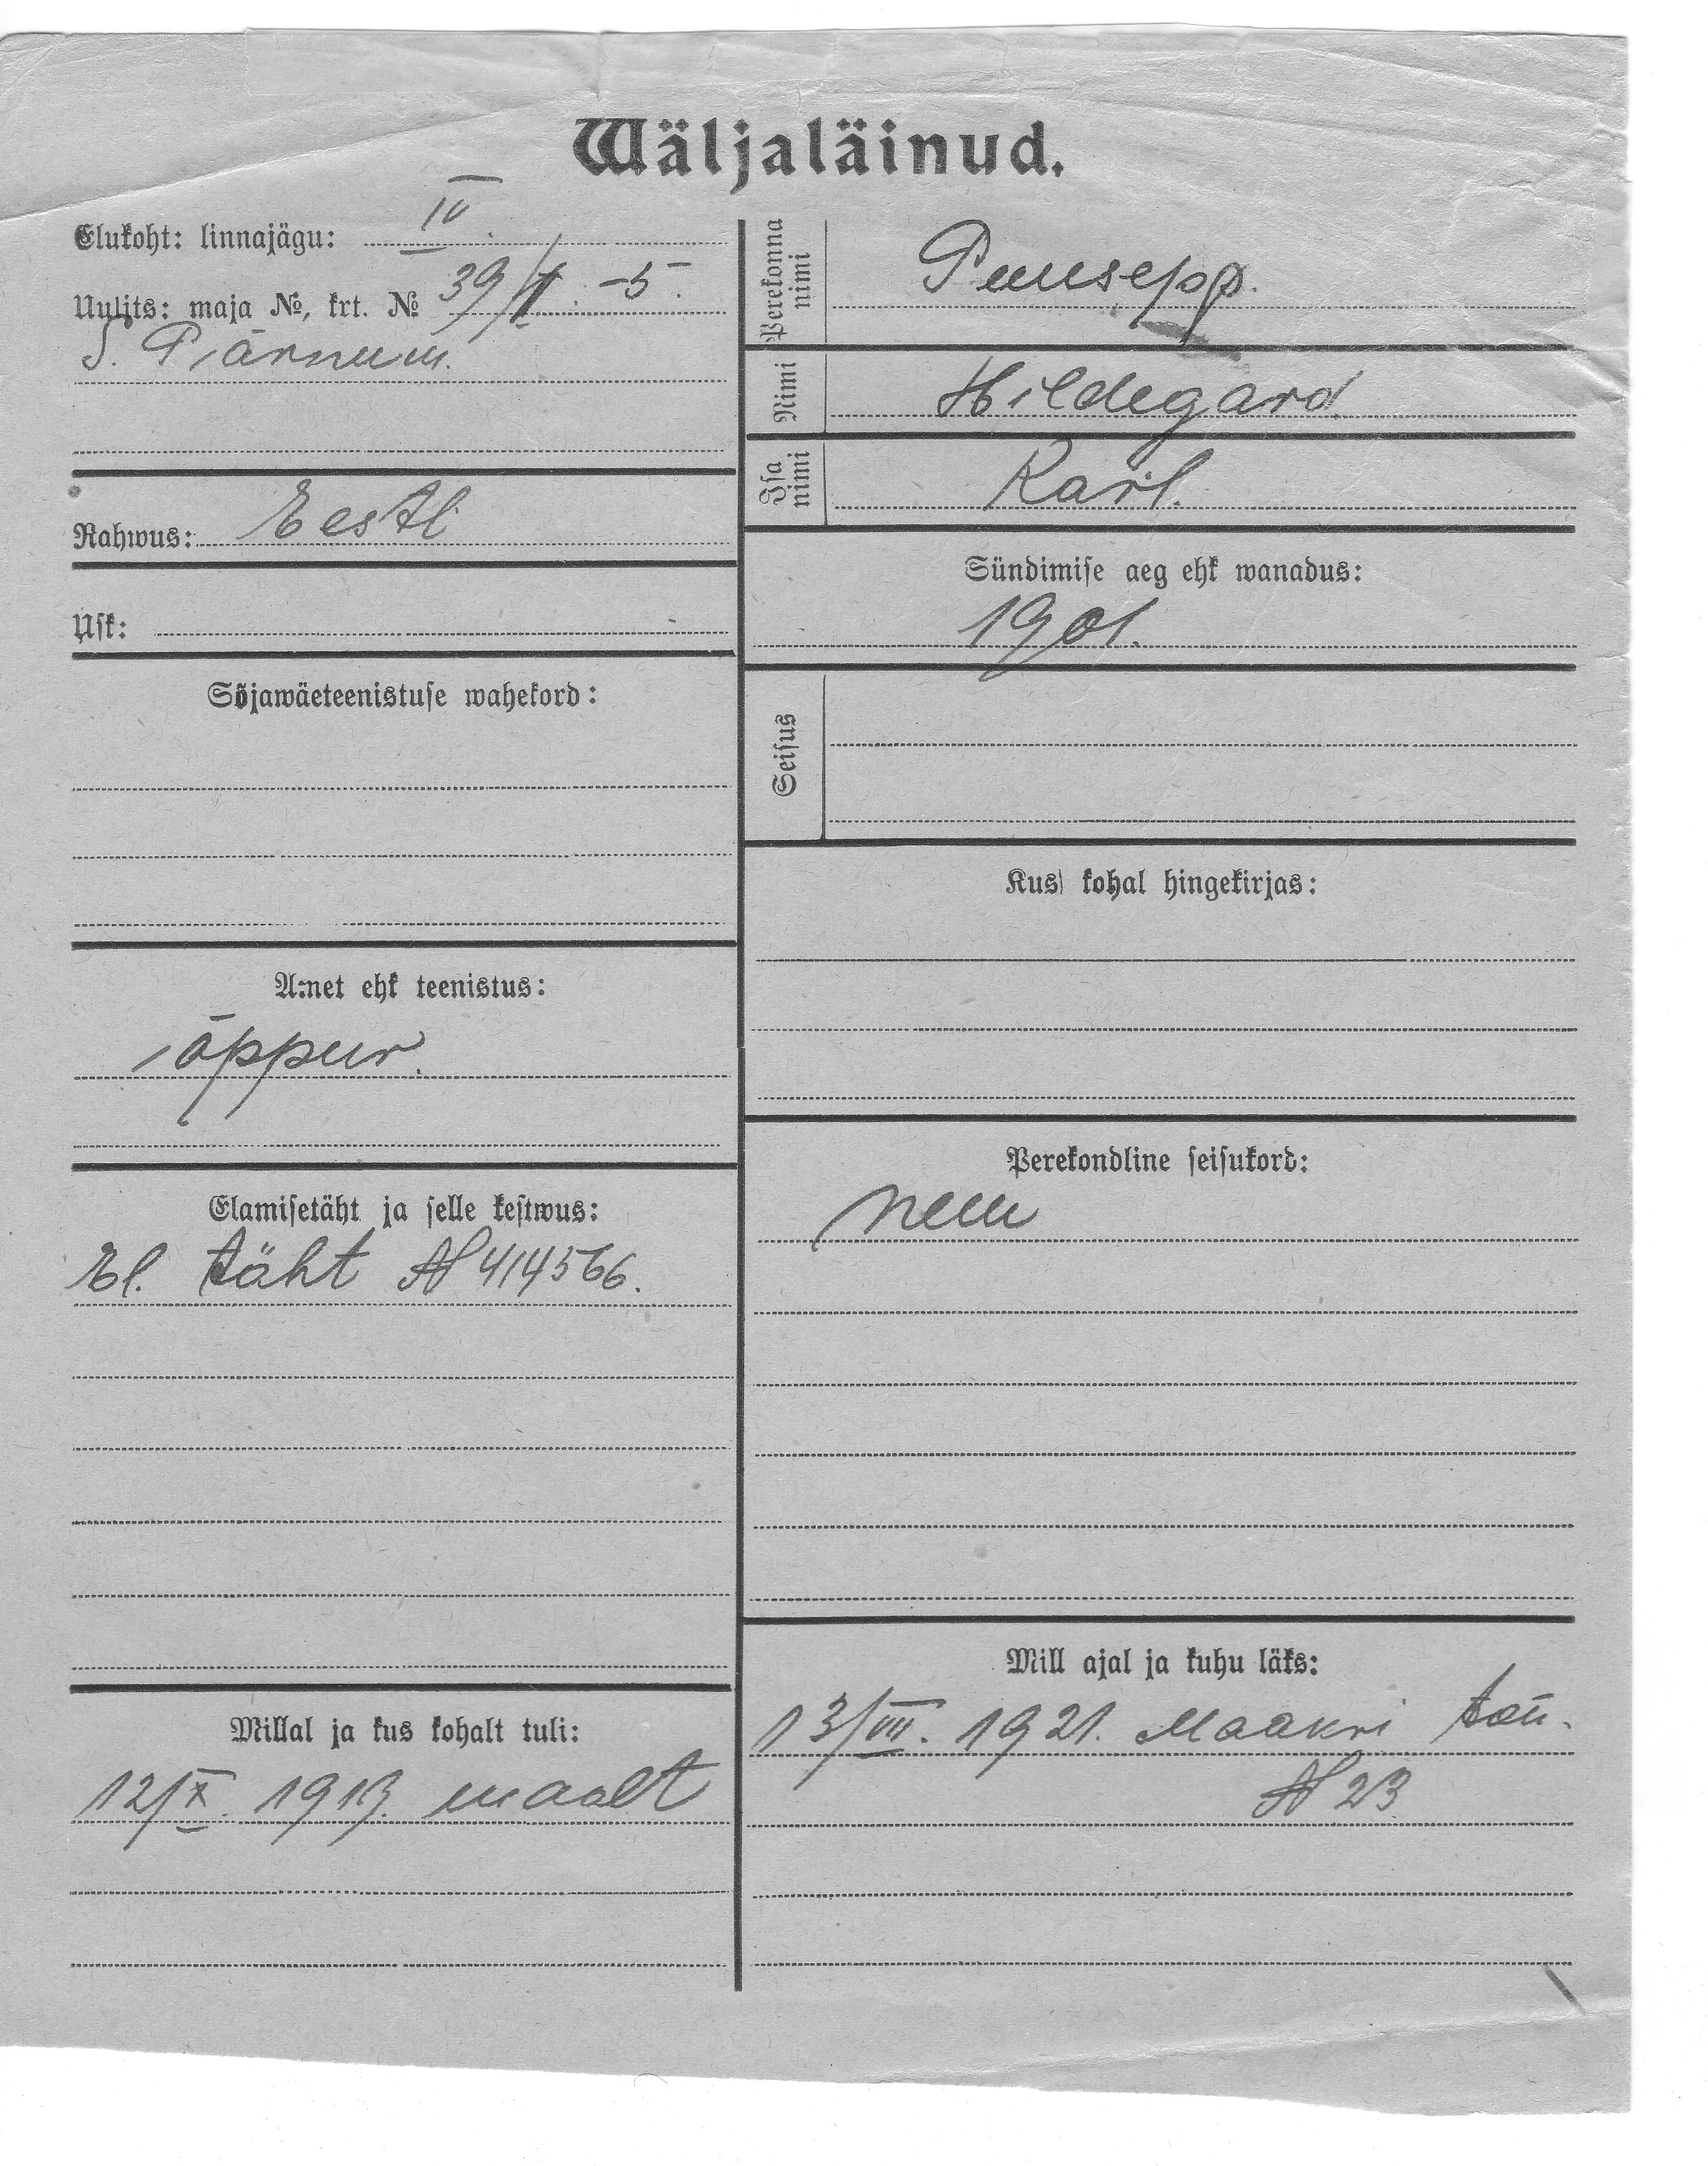 Wäljaläinud.
Elukoht: linnajägu: IV
Uulits: maja №, krt. № 39/1. -5.
S. Pärnu m.
Rahwus: Eesti
Usk:
Sõjawäeteenistuse wahekord:
Amet ehk teenistus:
õppur.
Elamisetäht ja selle kestwus:
El. täht № 414566.
Millal ja kus kohalt tuli:
12/X. 1919. maalt
Perekonna nimi Puusepp.
Nimi Hildegard
Isa nimi Karl.
Sündimise aeg ehk wanadus:
1901.
Seisus
Kus kohal hingekirjas:
Perekondline seisukord:
neiu
Mill ajal ja kuhu läks:
13/VII. 1921. Maakri tän.
№ 23